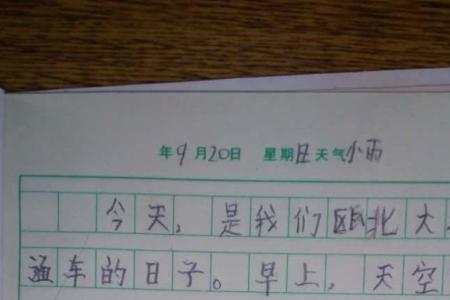 年9月20日 星期日天气小雨
今天，是我们瓯北大
通车的日子。早上，天空